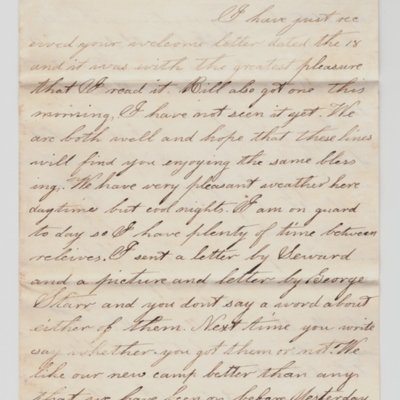 I have just rec
ieved your welcome letter dated the 18
and it was with the greatest pleasure
that I read it. Bill also got one this
morning, I have not seen it yet. We
are both well and hope that these lines
will find you enjoying the same bless
ing. We have very pleasant weather here
daytime but cool nights. I am on guard
to day so I have plenty of time between
releives. I sent a letter by Seward
and a picture and letter by George
Starr and you dont say a word about
either of them. Next time you write
say whether you got them or not. We
like our new camp better than any
that we have been on before. Yesterday